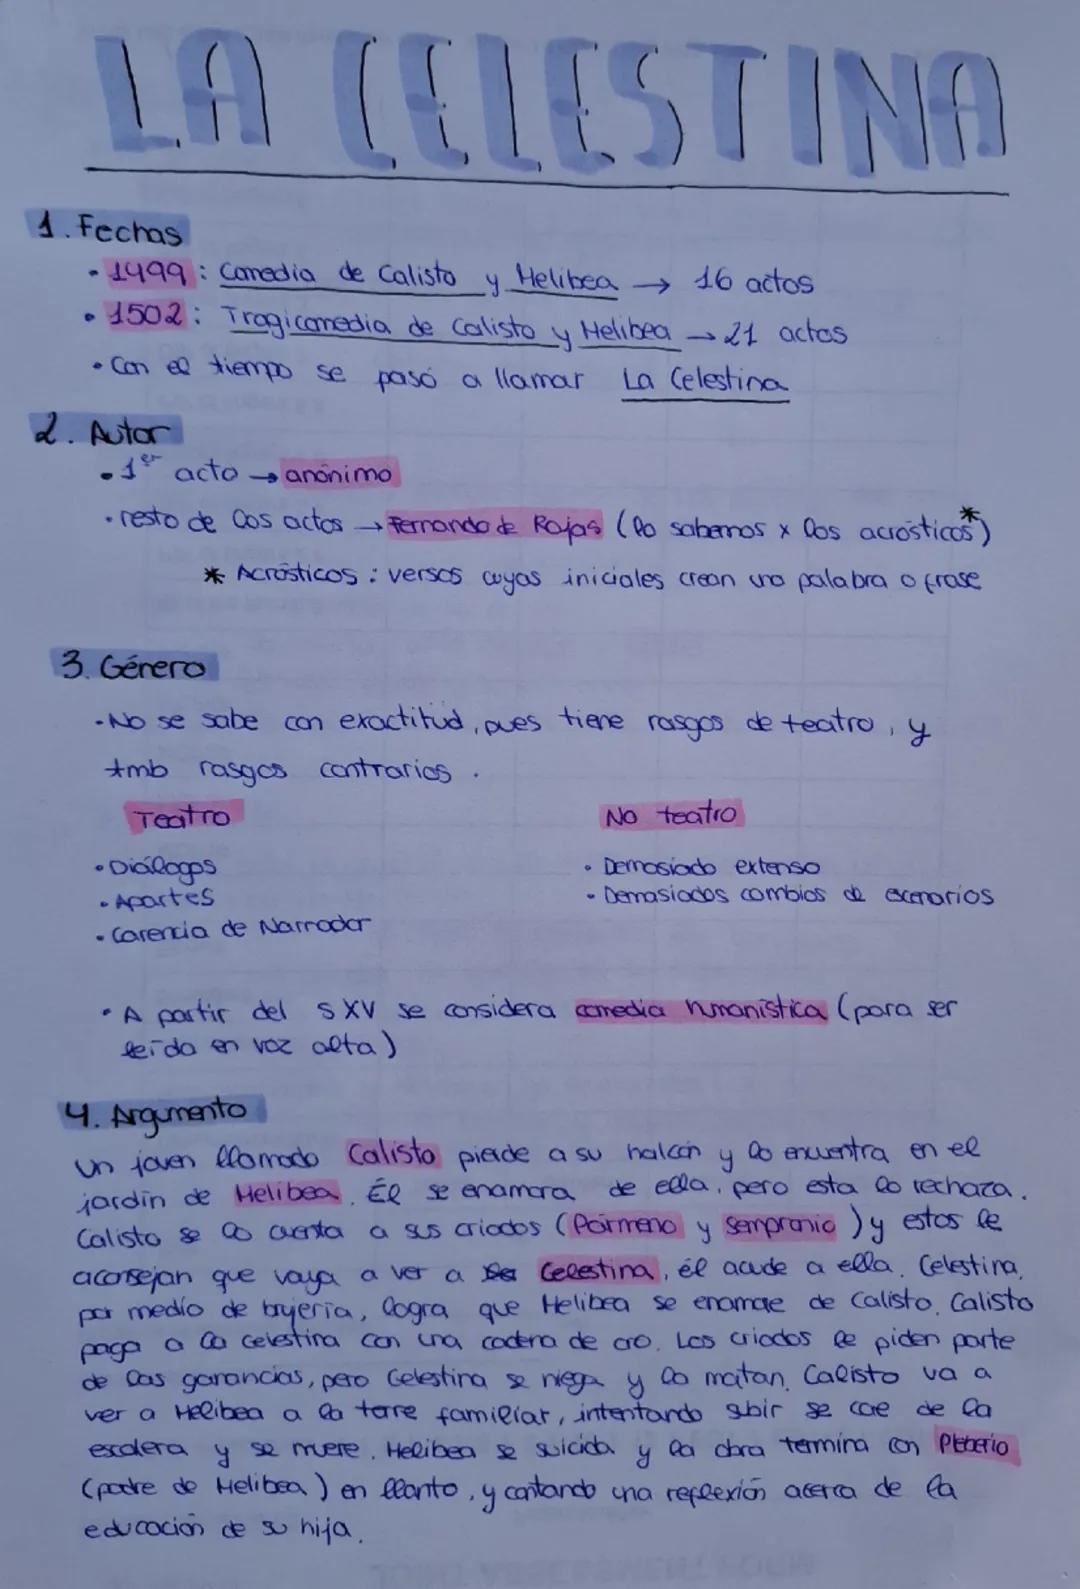 LA CELESTINA
1. Fechas
• 1499: Comedia de Calisto y Melibea → 16 actos
• 1502: Tragicomedia de Calisto y Melibea → 21 actos
• Con el tiempo se pasó a llamar La Celestina
2. Autor
• 1er acto → anónimo
• resto de los actos → Fernando de Rojas (lo sabemos x los acrósticos*)
* Acrósticos: versos cuyas iniciales crean una palabra o frase
3. Género
• No se sabe con exactitud, pues tiene rasgos de teatro, y
tmb rasgos contrarios.
Teatro No teatro
• Diálogos • Demasiado extenso
• Apartes • Demasiados cambios de escenarios
• Carencia de Narrador
• A partir del s XV se considera comedia humanística (para ser
leída en voz alta)
4. Argumento
Un joven llamado Calisto pierde a su halcón y lo encuentra en el
jardín de Melibea. Él se enamora de ella, pero esta lo rechaza.
Calisto se lo cuenta a sus criados (Pármeno y Sempronio) y estos le
aconsejan que vaya a ver a Celestina, él acude a ella. Celestina,
por medio de brujería, logra que Melibea se enamore de Calisto. Calisto
paga a la celestina con una cadena de oro. Los criados le piden parte
de las ganancias, pero Celestina se niega y la matan. Calisto va a
ver a Melibea a la torre familiar, intentando subir se cae de la
escalera y se muere. Melibea se suicida y la obra termina con Pleberio
(padre de Melibea) en llanto, y contando una reflexión acerca de la
educación de su hija.